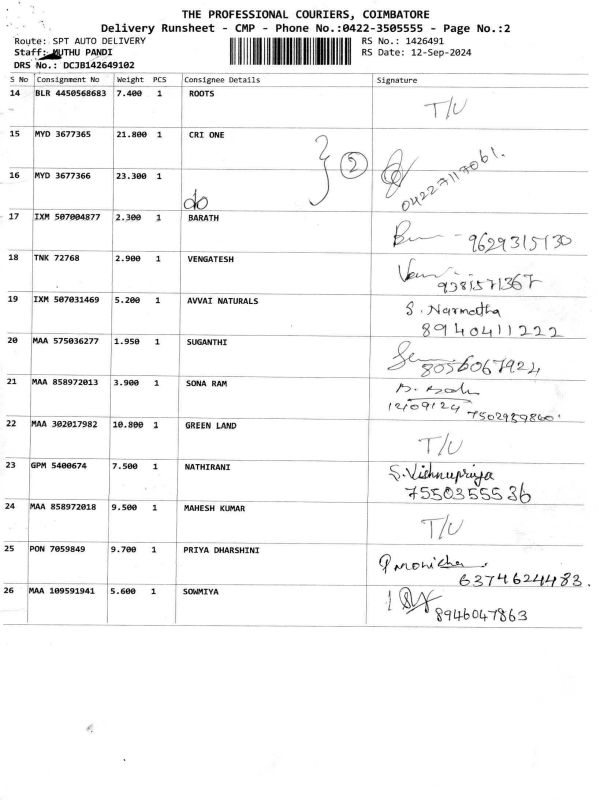 THE PROFESSIONAL COURIERS, COIMBATORE
Delivery Runsheet - CMP - Phone No.:0422-3505555 - Page No.:2
Route: SPT AUTO DELIVERY RS No.: 1426491
Staff: MUTHU PANDI RS Date: 12-Sep-2024
DRS No.: DCJB142649102
S No Consignment No Weight PCS Consignee Details Signature
14 BLR 4450568683 7.400 1 ROOTS
T/U
15 MYD 3677365 21.800 1 CRI ONE
2
04227117061.
16 MYD 3677366 23.300 1
do
17 IXM 507004877 2.300 1 BARATH
9629315130
18 TNK 72768 2.900 1 VENGATESH
9381571367
19 IXM 507031469 5.200 1 AVVAI NATURALS
S. Narmatha
8940411222
20 MAA 575036277 1.950 1 SUGANTHI
8056067924
21 MAA 858972013 3.900 1 SONA RAM
12/09/24 7502989860.
22 MAA 302017982 10.800 1 GREEN LAND
T/U
23 GPM 5400674 7.500 1 NATHIRANI
S. Vishnupriya
7550355536
24 MAA 858972018 9.500 1 MAHESH KUMAR
T/U
25 PON 7059849 9.700 1 PRIYA DHARSHINI
6374624483.
26 MAA 109591941 5.600 1 SOWMIYA
8946047863